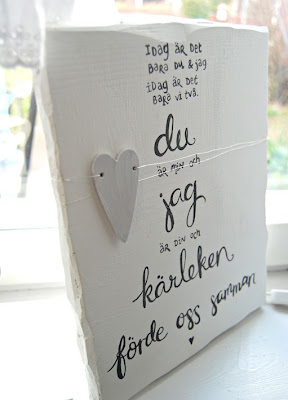 IDAG ÄR DET
BARA DU & JAG
IDAG ÄR DET
BARA VI TVÅ.
du
ÄR MIN OCH
jag
ÄR DIN OCH
kärleken
förde oss samman